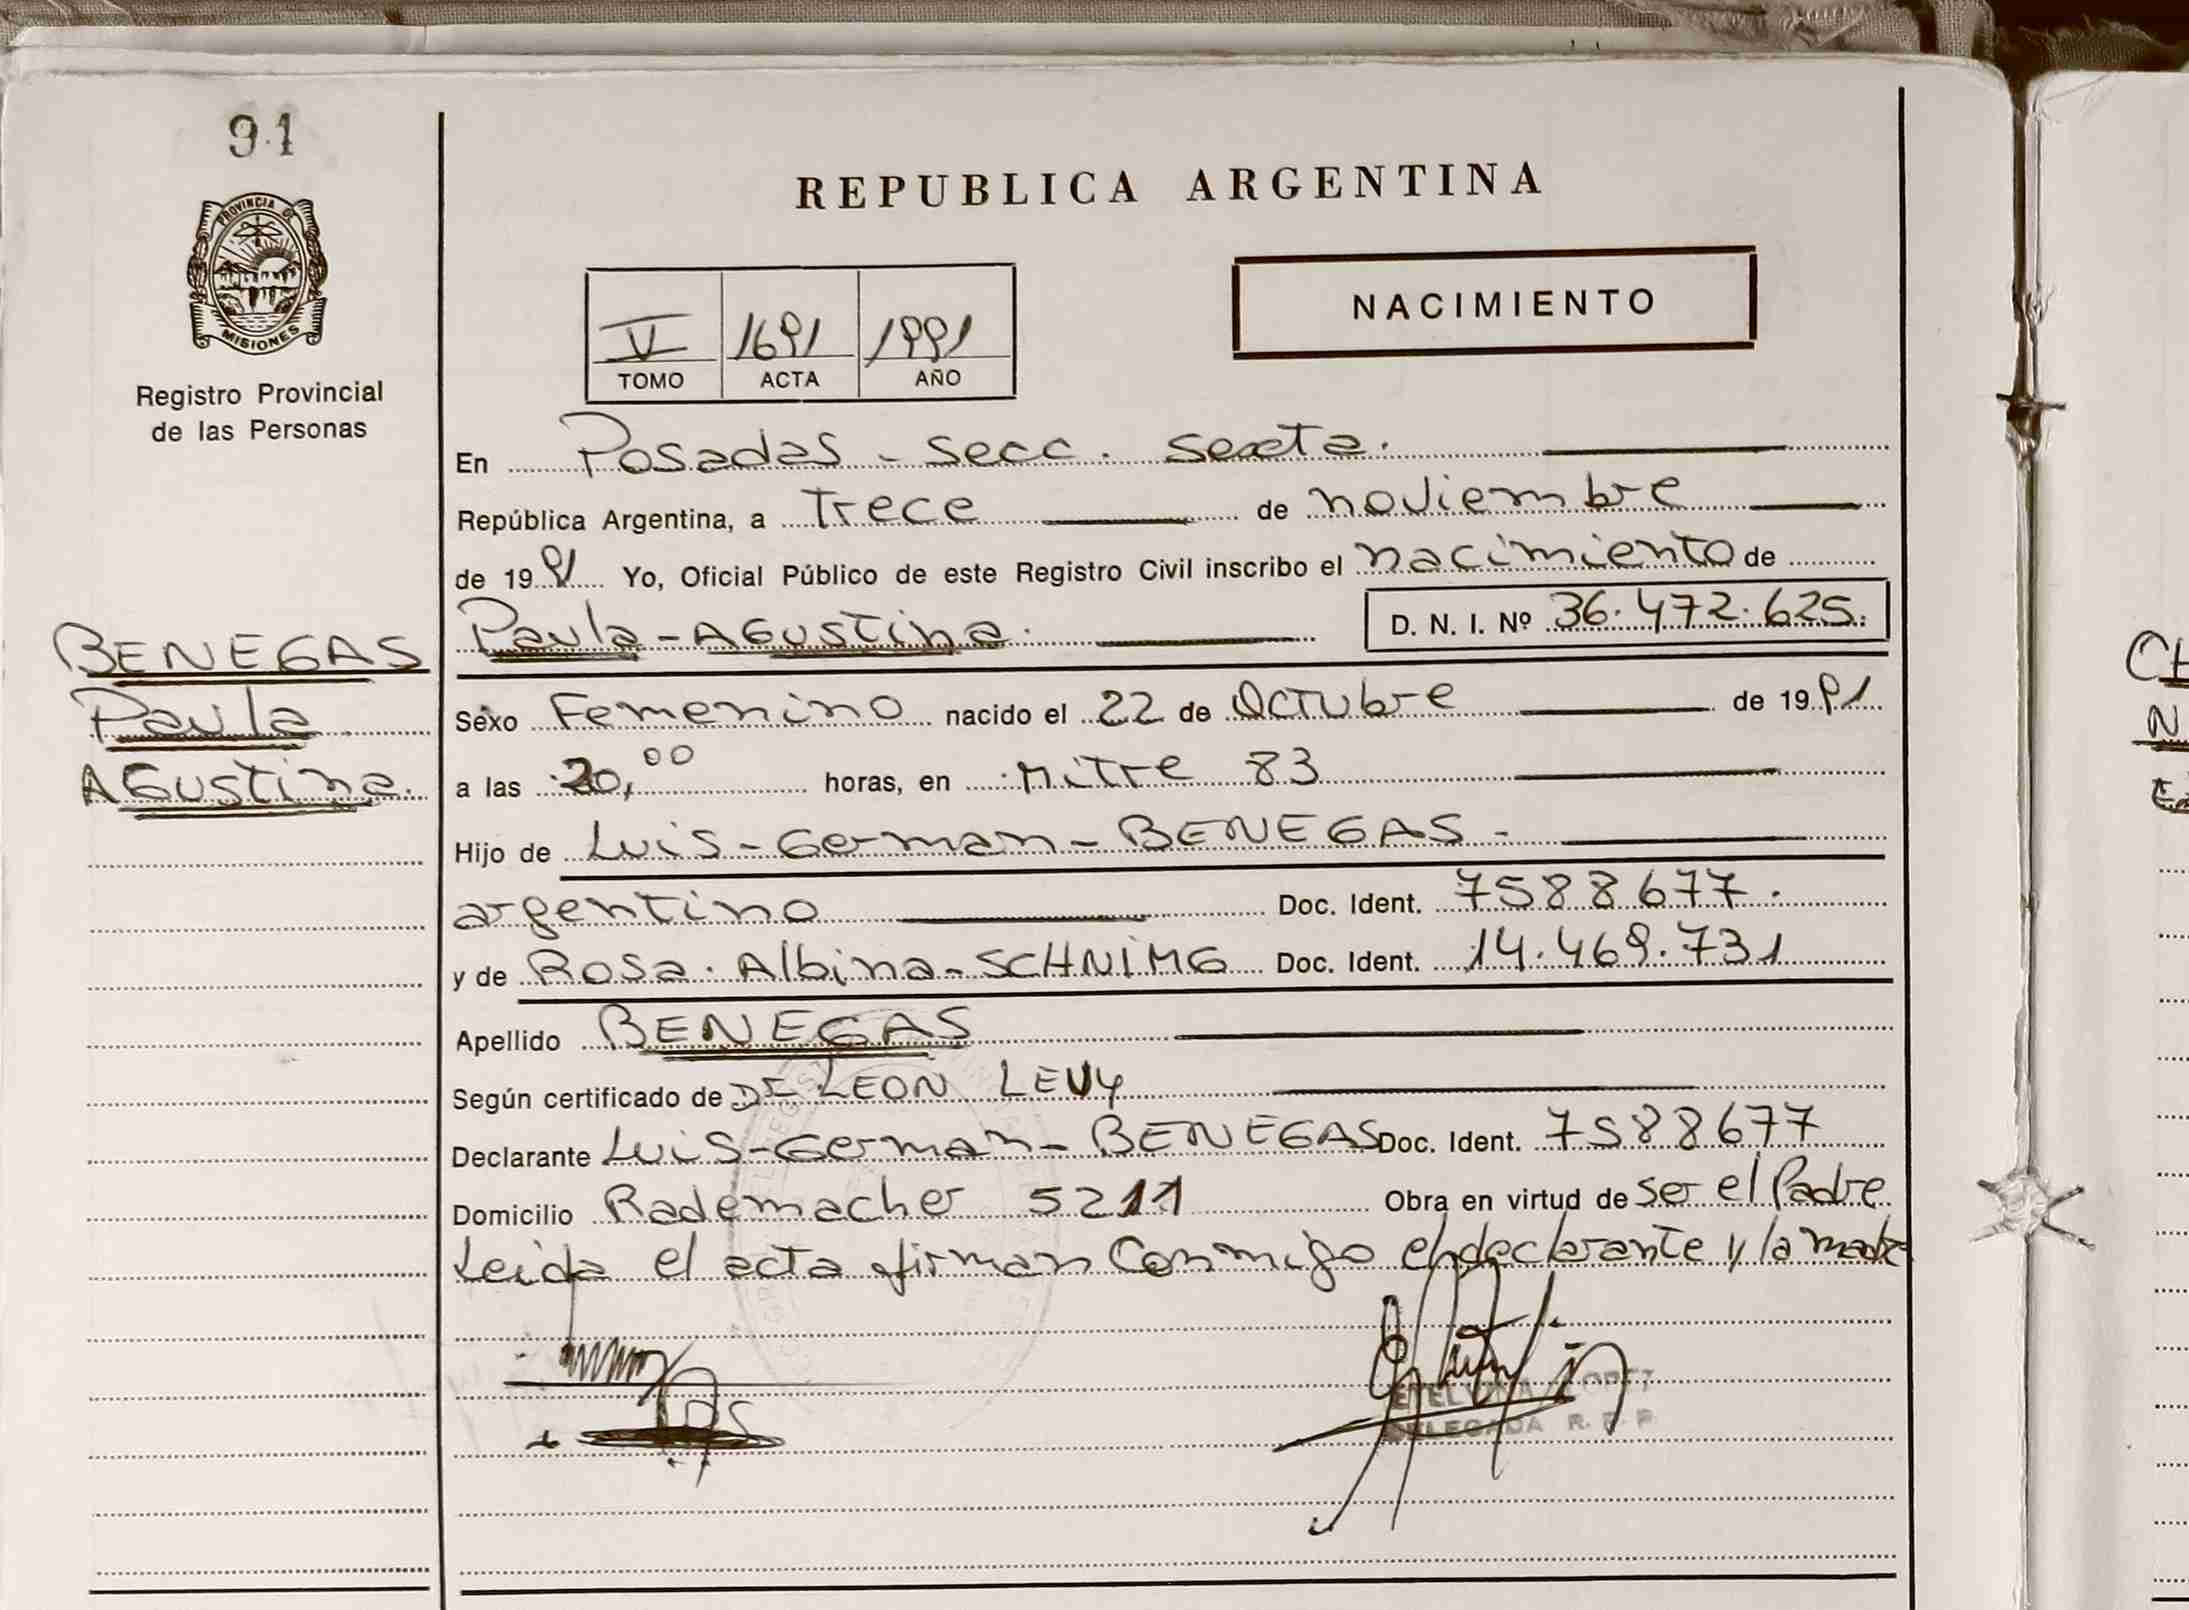 91
PROVINCIA DE
MISIONES
Registro Provincial
de las Personas
BENEGAS
Paula
Agustina.
REPUBLICA ARGENTINA
NACIMIENTO
V 1691 1991
TOMO ACTA AÑO
En Posadas - secc. sexta.
República Argentina, a Trece de noviembre
de 1991 Yo, Oficial Público de este Registro Civil inscribo el nacimiento de
Paula - Agustina. D. N. I. Nº 36.472.625.
Sexo Femenino nacido el 22 de Octubre de 1991
a las 20,00 horas, en Mitre 83
Hijo de Luis - German - BENEGAS -
argentino Doc. Ident. 7588677.
y de Rosa. Albina - SCHNIMG Doc. Ident. 14.469.731
Apellido BENEGAS
Según certificado de DE LEON LEVY
Declarante Luis - German - BENEGAS Doc. Ident. 7588677
Domicilio Rademacher 5211 Obra en virtud de ser el Padre
Leida el acta firman Conmigo el declarante y la madre
ETELVINA LOPEZ
DELEGADA R. P. P.
CH
N